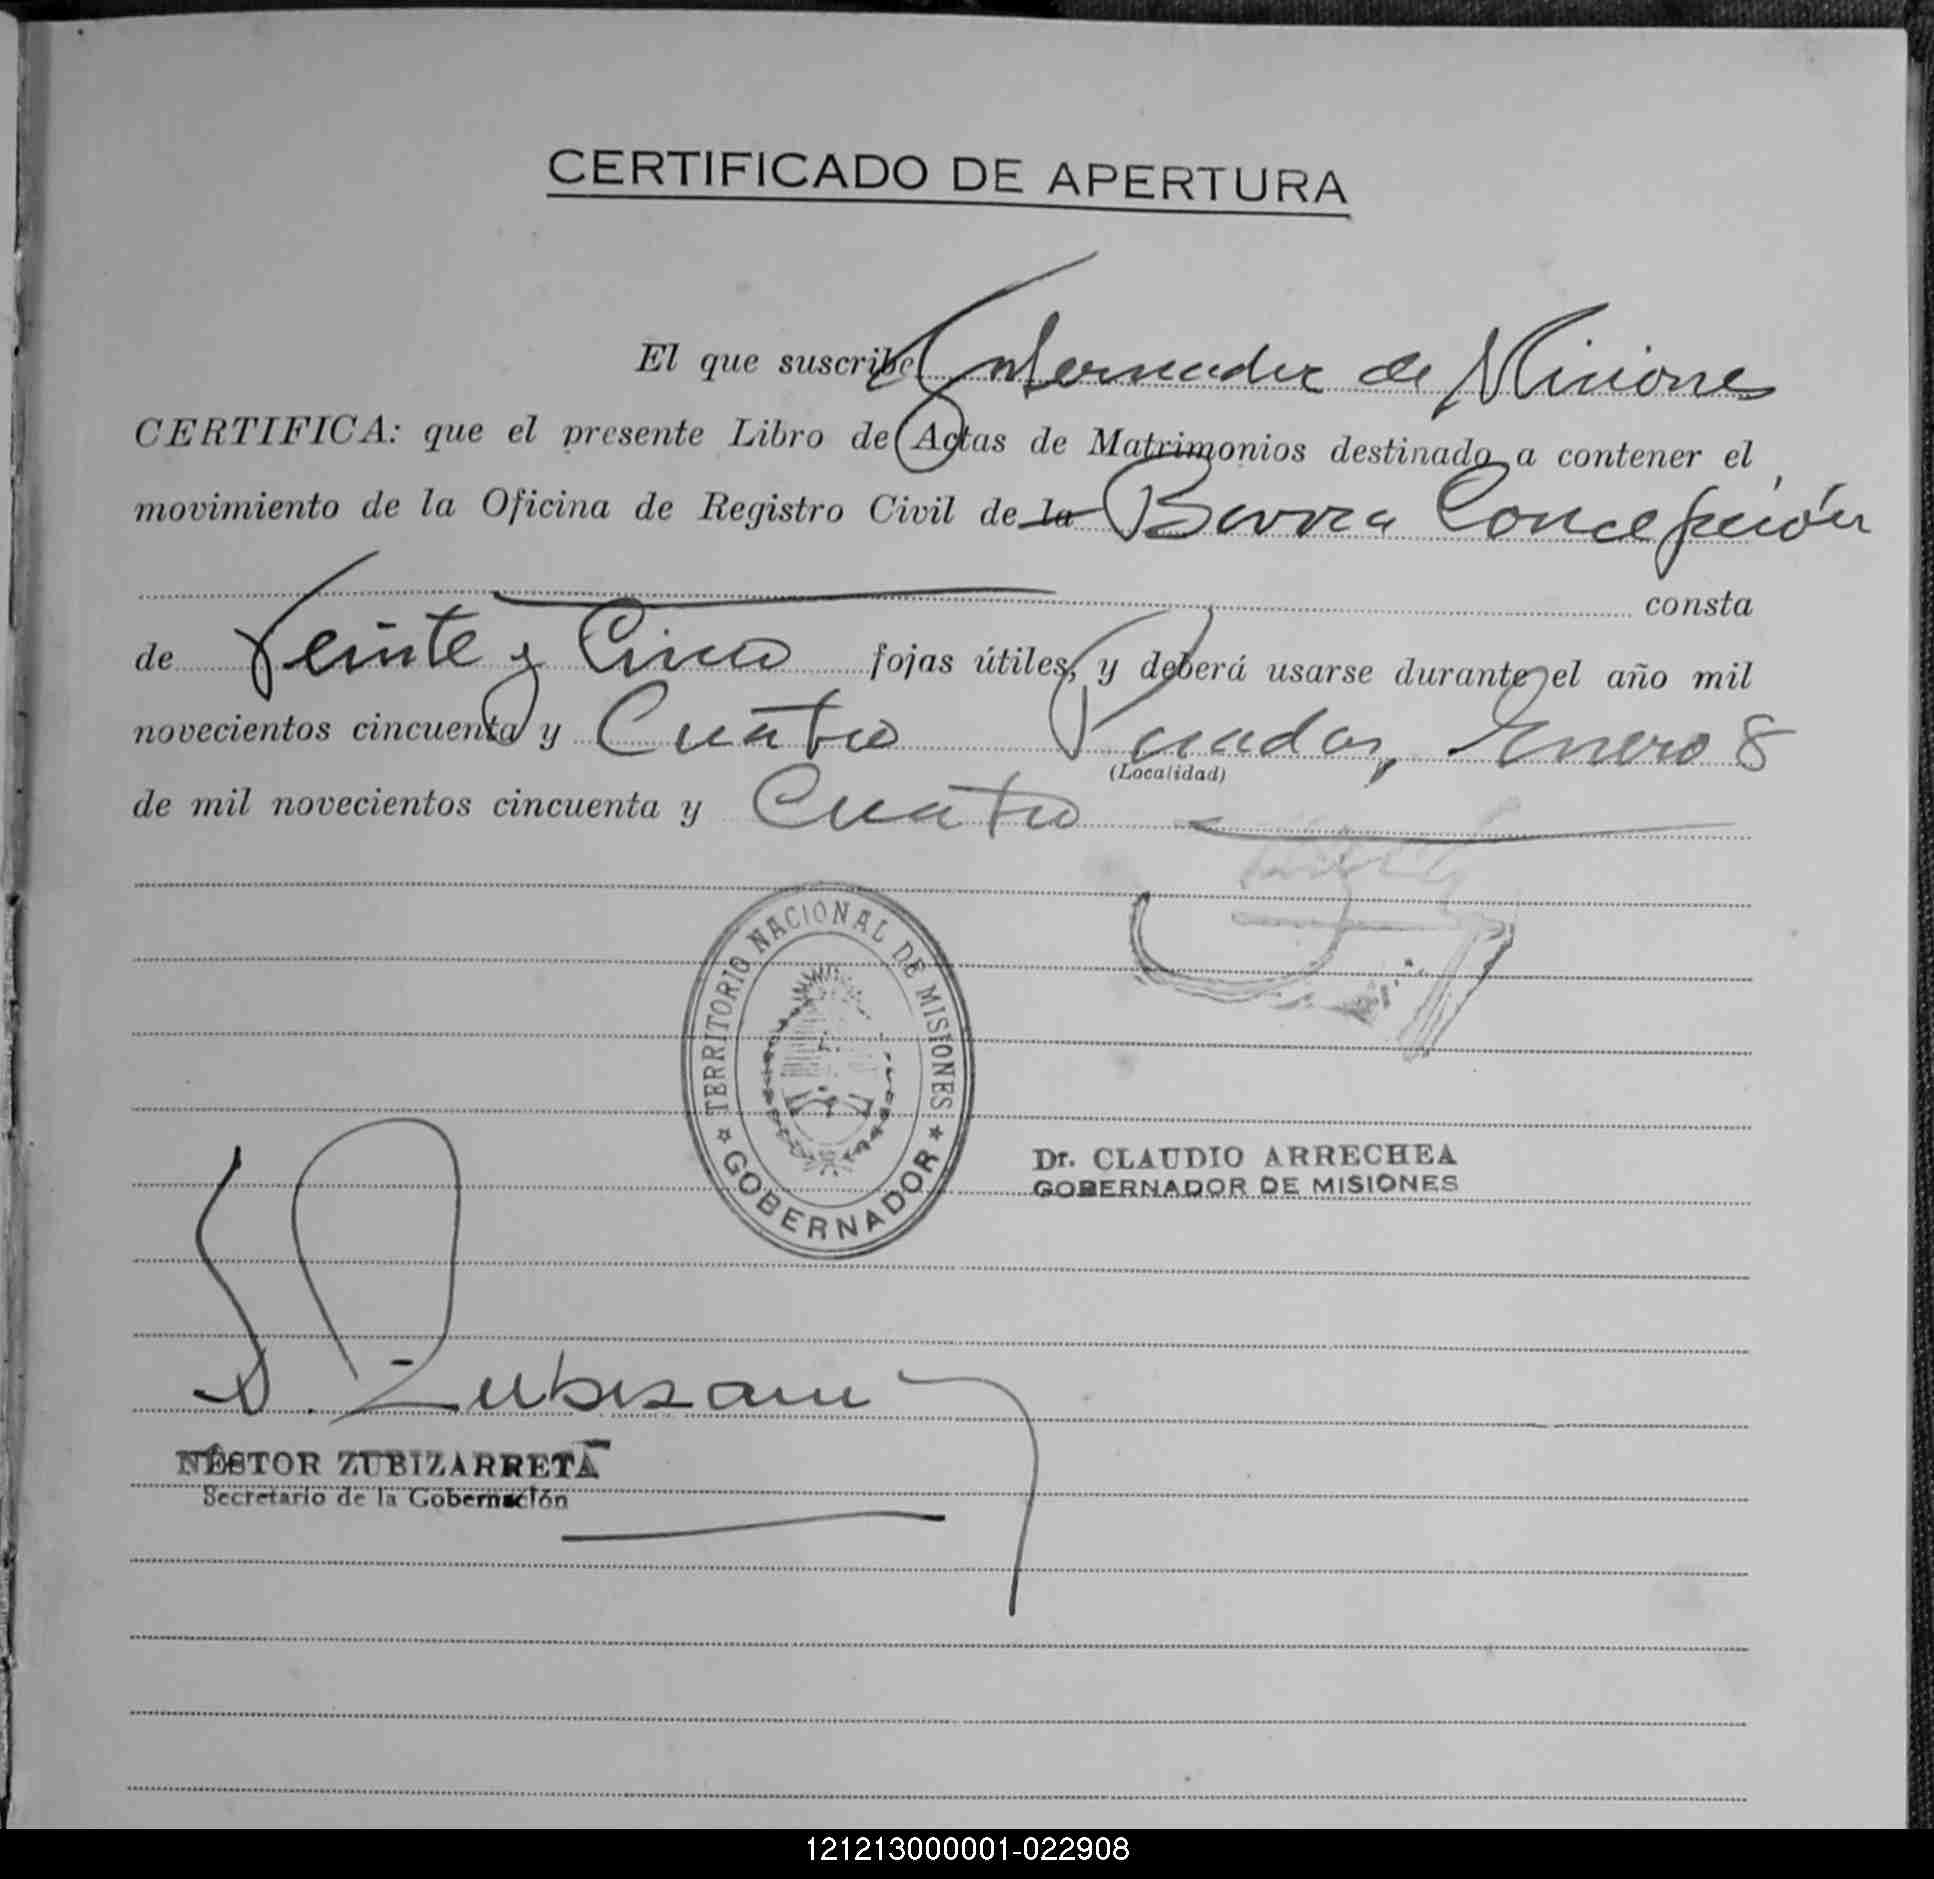 CERTIFICADO DE APERTURA
El que suscribe Gobernador de Misiones
CERTIFICA: que el presente Libro de Actas de Matrimonios destinado a contener el
movimiento de la Oficina de Registro Civil de la Barra Concepción
consta
de Veinte y Cinco fojas útiles, y deberá usarse durante el año mil
novecientos cincuenta y Cuatro Posadas, Enero 8
(Localidad)
de mil novecientos cincuenta y Cuatro
TERRITORIO NACIONAL DE MISIONES
GOBERNADOR
Dr. CLAUDIO ARRECHEA
GOBERNADOR DE MISIONES
NÉSTOR ZUBIZARRETA
Secretario de la Gobernación
121213000001-022908